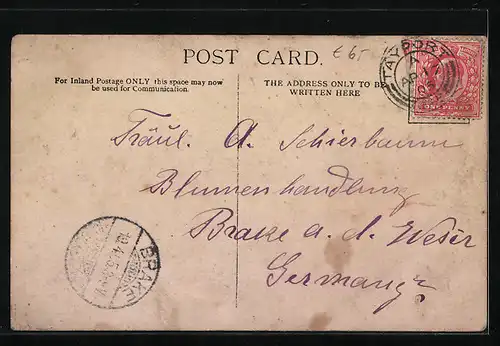 POST CARD.
€65
For Inland Postage ONLY this space may now
be used for Communication.
THE ADDRESS ONLY TO BE
WRITTEN HERE
TAYPORT
A
AP 17
ONE PENNY
Fräul. A. Schierbaum
Blumenhandlung
Brake a. d. Weser
Germany
BRAKE